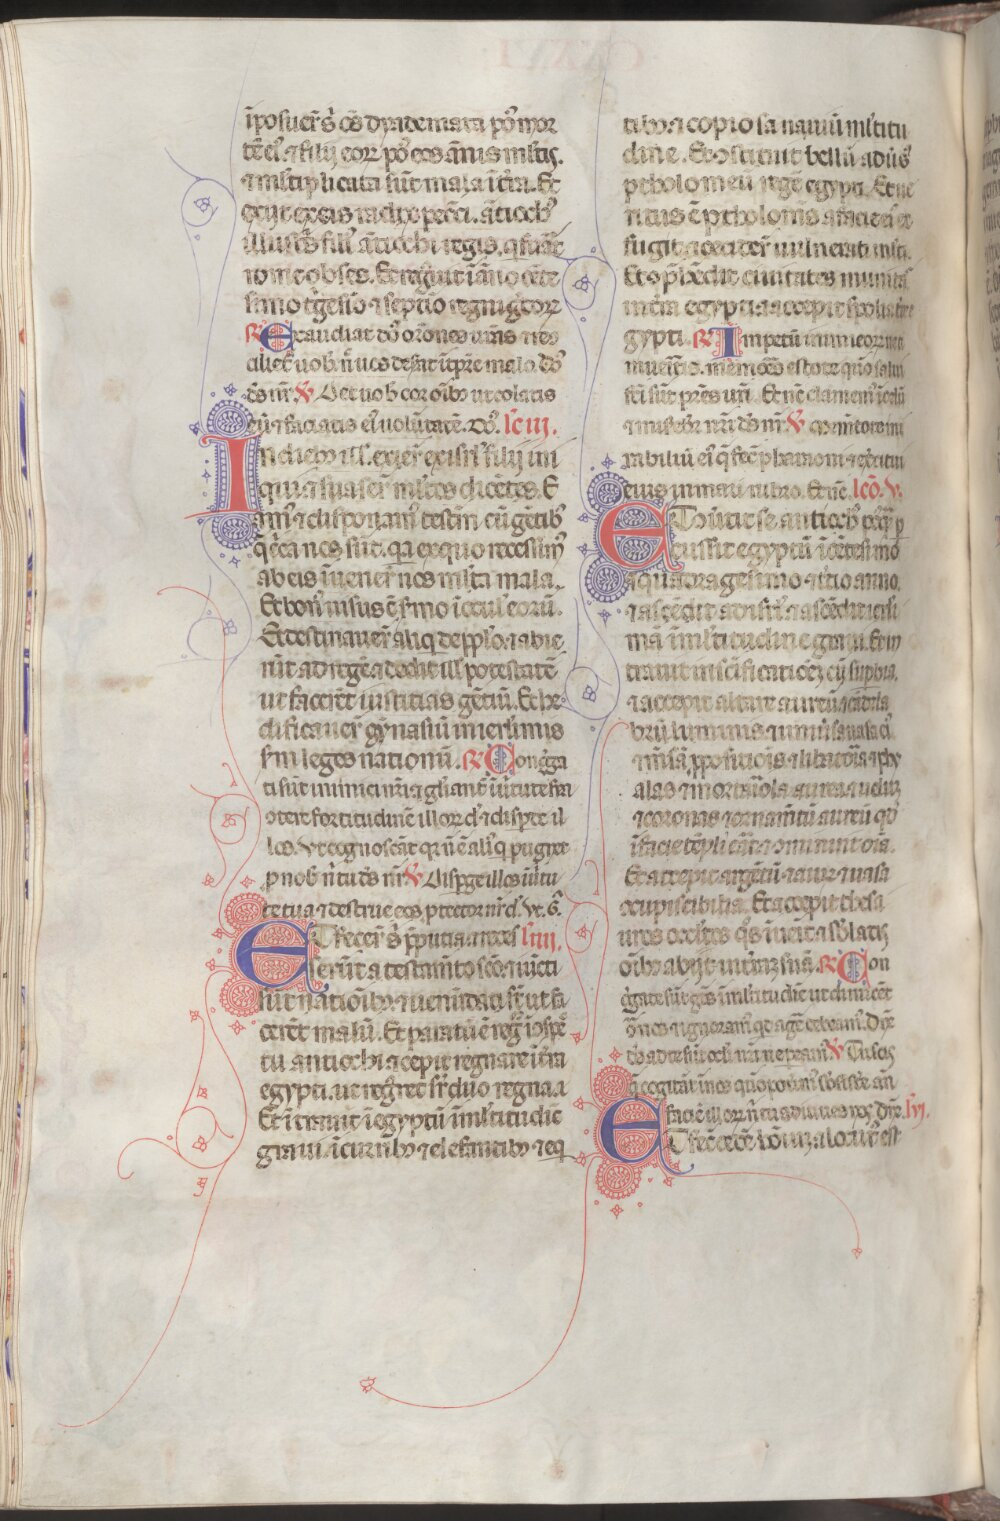 īposuer̄t s̄ oēs dyademata pꝰ mor
tē eiꝰ ⁊ filij eoꝝ pꝰ eos ānis ml̄tis.
⁊ ml̄tiplicata sūt mala ī tr̄a. Et
exijt ex eis radix pctī. ātiochꝰ
illustris filiꝰ ātiochi regis. q fuāt
rome obses. Et regnauit ī āno cēte
simo tͥgesīo ⁊ septīo regni gͨcoꝝ
℟ Exaudiat dn̄s or̄ones vr̄as ⁊ recō
cilietͬ uob̄ n̄ uos deserat ī tp̄re malo. dn̄s
ds̄ nr̄ ℣ Det uob̄ cor oībꝫ ut colatis
eū ⁊ faciatis eiꝰ volūtatē. Dn̄s. lc̄ iij.
In diebꝫ ill̄. exier̄t ex isrl̄ filij ini
qui. ⁊ suaser̄t ml̄tos dicētes. E
amꝰ ⁊ disponamꝰ testm̄ cū gētibꝫ
q̄ circa nos sūt. qꝛ ex quo recessimꝰ
ab eis īuener̄t nos ml̄ta mala.
Et bonꝰ uisus ē s̄mo ī ocul̄ eorū.
Et destinauer̄t aliqͥ de pplo. ⁊ abie
rūt ad regē. ⁊ dedit ill̄ potestatē
ut facerēt iustitias gētiū. Et he
dificauer̄t gymnasiū in ierl̄imis
sm̄ leges nationū. ℟ Congͬega
ti sūt inimici nr̄i ⁊ gl̄iantͬ ī uͥtute sua
ɔtere fortitudinē illoꝝ dn̄e ⁊ disperde il
los. Vt cognoscāt qꝛ n̄ ē aliꝰ q pugnet
p nob̄ n̄ tu ds̄ nr̄ ℣ Disperge illos ī uͥtu
te tua ⁊ destrue eos ptector nr̄ dn̄e. Vt. G.
Et fecer̄t s̄ prputia. ⁊ reces lc̄ iiij.
serūt a testamīto scō. ⁊ iūcti
sūt natioībꝫ. ⁊ uenūdati sūt ut fa
cerēt malū. Et paratū ē regnū ī ɔspc̄
tu antiochi ⁊ cepit regnare ī tr̄a
egypti. ut regnaret sr̄ duo regna. ⁊
Et ītrauit ī egyptū ī ml̄titudīe
graui. ī curribꝫ ⁊ elefantibꝫ ⁊ eqͥ
tibꝫ ⁊ copiosa nauiū ml̄titu
dine. Et ɔstituit bellū aduͥsꝰ
ptholomeū regē egypti. Et ue
ritus ē ptholomeꝰ a facie eiꝰ et
fugit ⁊ cecider̄t uulnerati ml̄ti.
Et ɔphēdit ciuitates munitas
in tr̄a egypti ⁊ accepit spolia tr̄e e
gypti. ℟ Impetū inimicoꝝ ne ti
mueritis. memores estote quō salui
fc̄i sūt pr̄es vr̄i. Et nc̄ clamemꝰ ī celū
⁊ miserebitͬ nr̄i ds̄ nr̄ ℣ Mementote mi
rabiliū eiꝰ q̄ fecit pharaoni ⁊ exercitui
eius in mari rubro. Et nc̄. lcō. v.
Et ɔuͥtit se antiochꝰ postq̄ p
cussit egyptū ī cētesimo
⁊ quadragesimo ⁊ tͥtio anno.
⁊ ascēdit ad isrl̄. ⁊ ascēdit ierl̄i
mā ī ml̄titudine graui. Et in
trauit in scīficatiōēȝ cū supbia.
⁊ accepit altare aureū ⁊ cādela
brū luminis ⁊ uniuͥsa uasa eiꝰ
⁊ mēsā ppositiōis ⁊ libatoria ⁊ phy
alas ⁊ mortariola aurea ⁊ uelum
⁊ coronas ⁊ ornamētū aureū qd̄
ī facie tēpli erat. ⁊ ɔminuit oīa.
Et accepit argētū ⁊ aurū ⁊ uasa
ɔcupiscibilia. Et accepit thesa
uros occl̄tos qͦs īuenit. ⁊ sblatis
oībꝫ abijt in tr̄am suā. ℟ Con
gͬegate sūt gētes ī ml̄titudīe ut dimicēt
ɔͭ nos. ⁊ ignoramꝰ qd agͤe debeamꝰ. Dn̄e
ds̄ ad te sūt ocl̄i nr̄i ne pereamꝰ ℣ Tu scis
q̄ cogitāt ī nos quō poterimꝰ sbsistͤe an
te faciē illoꝝ n̄ tu adiuues nos. Dn̄e. lc̄ vj.
Et fecit cedē hoīum. ⁊ locutꝰ est